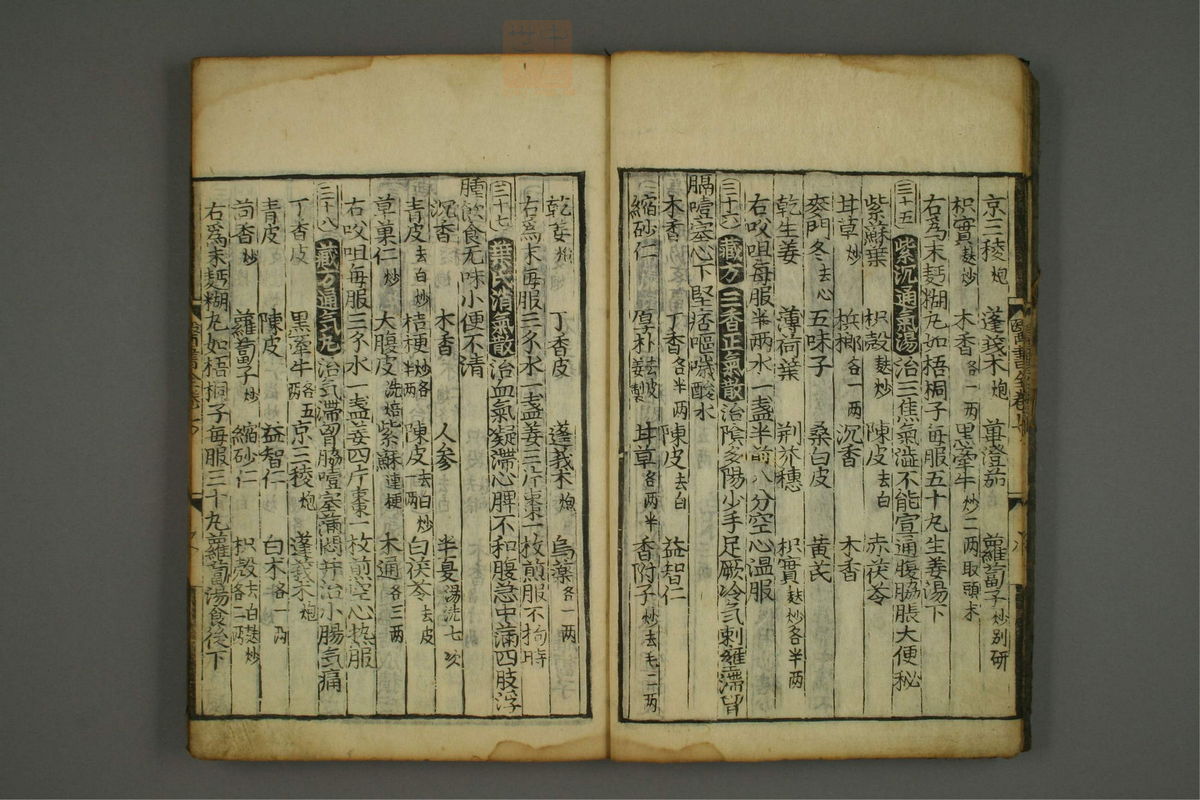 京三稜炮 蓬莪朮炮 蓽澄茄 蘿蔔子炒别研
枳實麩炒 木香各一两 黒牽牛炒二两取頭末
右爲末麪糊丸如梧桐子每服五十丸生姜湯下
三十五 紫沉通氣湯 治三焦氣澁不能宣通腹脇脹大便秘
紫蘇葉 枳殼麩炒 陳皮去白 赤茯苓
甘草炒 梹榔各一两 沉香 木香
麥門冬去心 五味子 桑白皮 黄芪
乾生姜 薄荷葉 荆芥穗 枳實麩炒各半两
右㕮咀每服半两水一盞半煎八分空心温服
三十六 蔵方三香正氣散 治陰多陽少手足厥冷气刺雍滯胷
膈噎塞心下堅痞嘔噦酸水
木香 丁香各半两 陳皮去白 益智仁
縮砂仁 厚朴去皮姜製 甘草各两半 香附子炒去毛二两
乾姜炮 丁香皮 蓬莪朮炮 烏藥各一两
右爲末每服三錢水一盞姜三片棗一枚煎服不拘時
三十七 葉氏消氣散 治血氣凝滯心脾不和腹急中滿四肢浮
腫飲食无味小便不清
沉香 木香 人參 半夏湯洗七次
青皮去白炒 桔梗炒各半两 陳皮去白炒一两 白茯苓去皮
草菓仁炒 大腹皮洗焙 紫蘇連梗 木通各三两
右㕮咀每服三錢水一盞姜四片棗一枚煎空心热服
三十八 蔵方通气丸 治气滯胷脇噎塞滿悶并治小腸气痛
丁香皮 黒牽牛各五两 京三稜炮 蓬莪朮炮
青皮 陳皮 益智仁 白朮各一两
茴香炒 蘿蔔子炒 縮砂仁 枳殼去白麩炒各二两
右爲末麪糊丸如梧桐子每服三十丸蘿蔔湯食後下